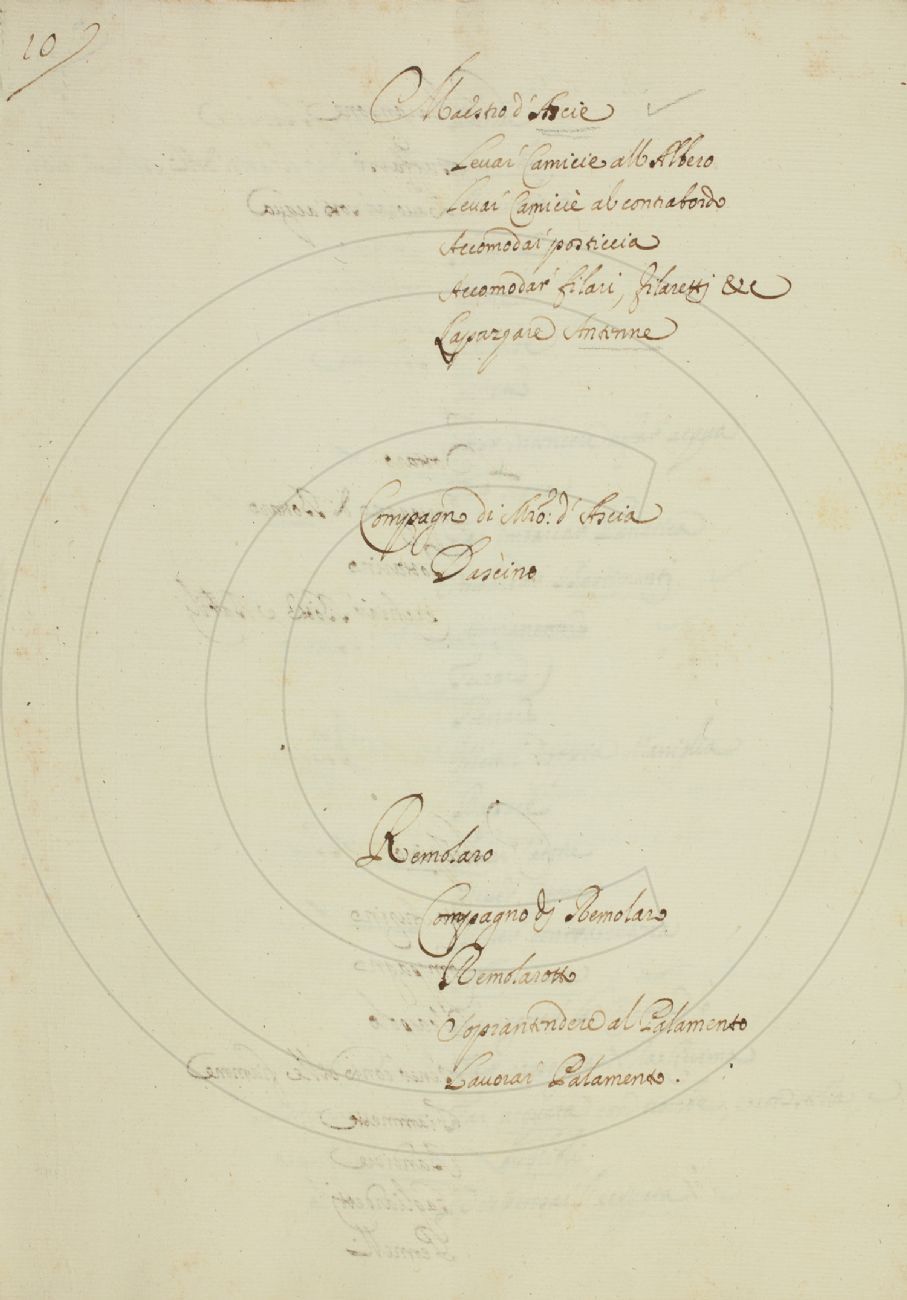 10
Maestro d'Ascie
Levar Camicie all Albero
Levar Camicie al contrabordo
Accomodar posticcia
Accomodar filari, filaretti &c
Antenne
Compagno di Mro: d'Ascia
Dascino
Remolaro
Compagno di Remolaro
Remolarotto
Soprantendere al Palamento
Lavorar Palamento.